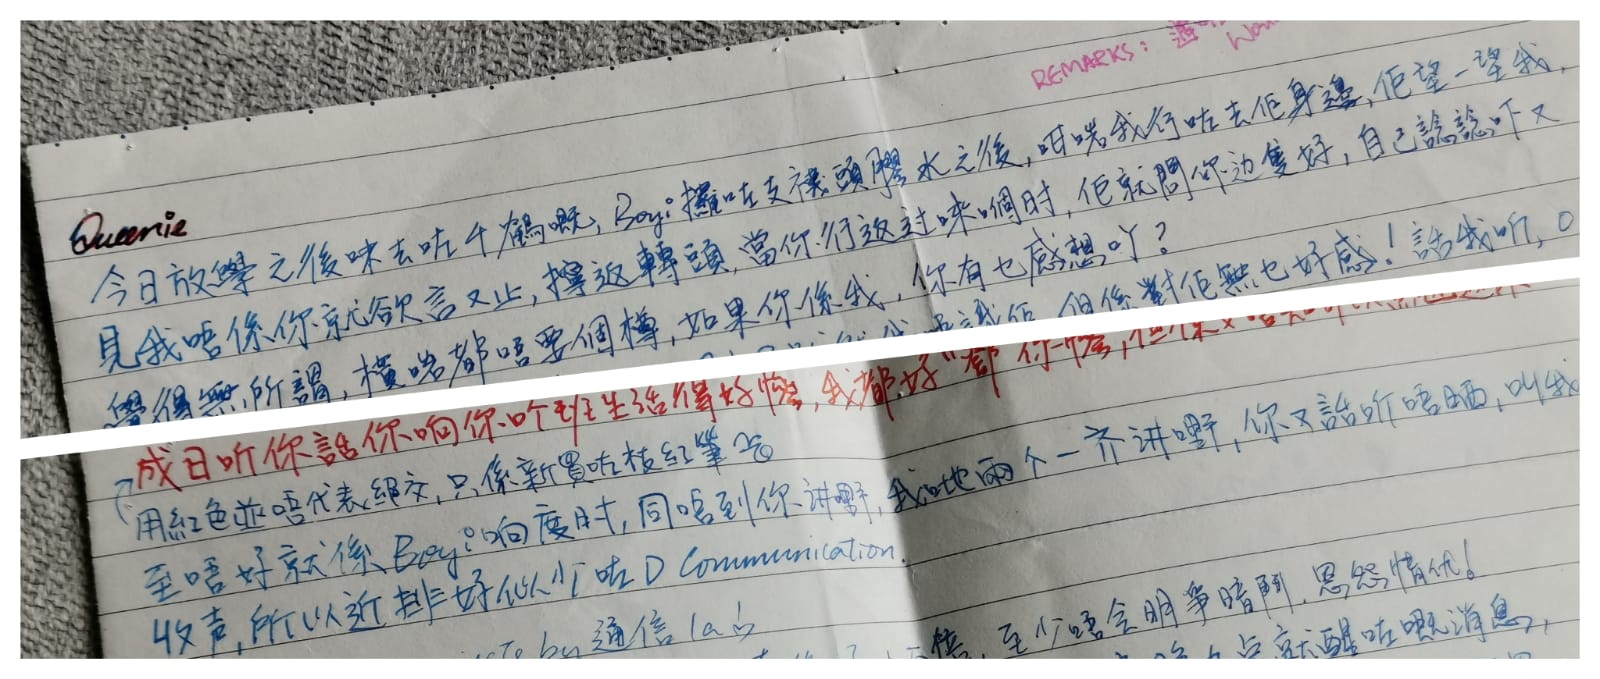 REMARKS:
Queenie
今日放學之後咪去咗千鶴嘅, Boy:攞咗支裱頭膠水之後, 咁啱我行咗去佢身邊, 佢望一望我,
見我唔係你就欲言又止, 擰返轉頭, 當你行返过嚟嗰个时, 佢就問你边隻好, 自己諗諗吓又
覺得無所謂, 橫啱都唔要個樽, 如果你係我, 你有乜感想吖?
但係對佢無乜好感! 話我听,
成日听你話你响你吤班生活得好慘, 我都好
用紅色並唔代表絕交, 只係新買咗枝紅筆
至唔好就係 Boy:响度时, 同唔到你讲嘢, 我哋兩个一齐讲嘢, 你又話听唔晒, 叫我
收声, 所以近排好似少咗D Communication.
by 通信 la
至少唔会明爭暗鬥, 恩怨情仇!
就醒咗嘅消息,